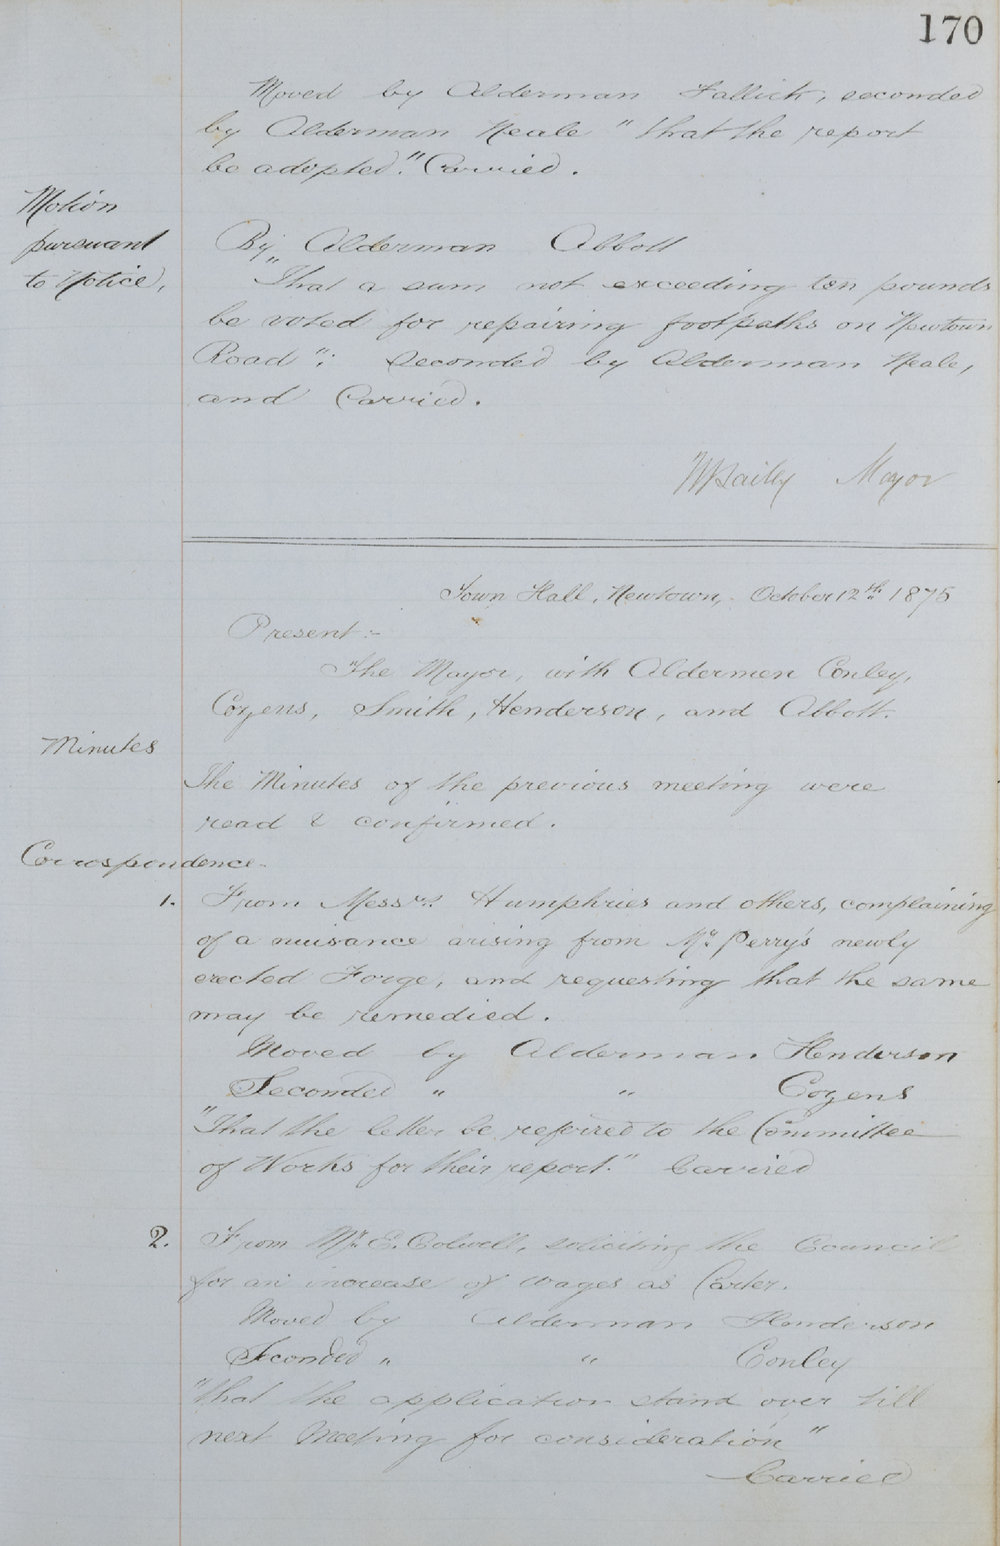 170
Moved by Alderman Fallick, seconded
by Alderman Neale "that the report
be adopted." Carried.
Motion
pursuant
to Notice,
By Alderman Abbott
"That a sum not exceeding ten pounds
be voted for repairing footpaths on Newtown
Road": Seconded by Alderman Neale,
and Carried.
WBailey Mayor
Town Hall, Newtown, October 12th 1875
Present:-
The Mayor, with Aldermen Conley,
Cozens, Smith, Henderson, and Abbott.
Minutes
The Minutes of the previous meeting were
read & confirmed.
Correspondence-
1. From Messrs. Humphries and others, complaining
of a nuisance arising from Mr. Perry's newly
erected Forge, and requesting that the same
may be remedied.
Moved by Alderman Henderson
Seconded " " Cozens
"That the letter be referred to the Committee
of Works for their report." Carried
2. From Mr. E. Colwell, soliciting the Council
for an increase of wages as Carter.
Moved by Alderman Henderson
Seconded " " Conley
"that the application stand over till
next Meeting for consideration"
Carried